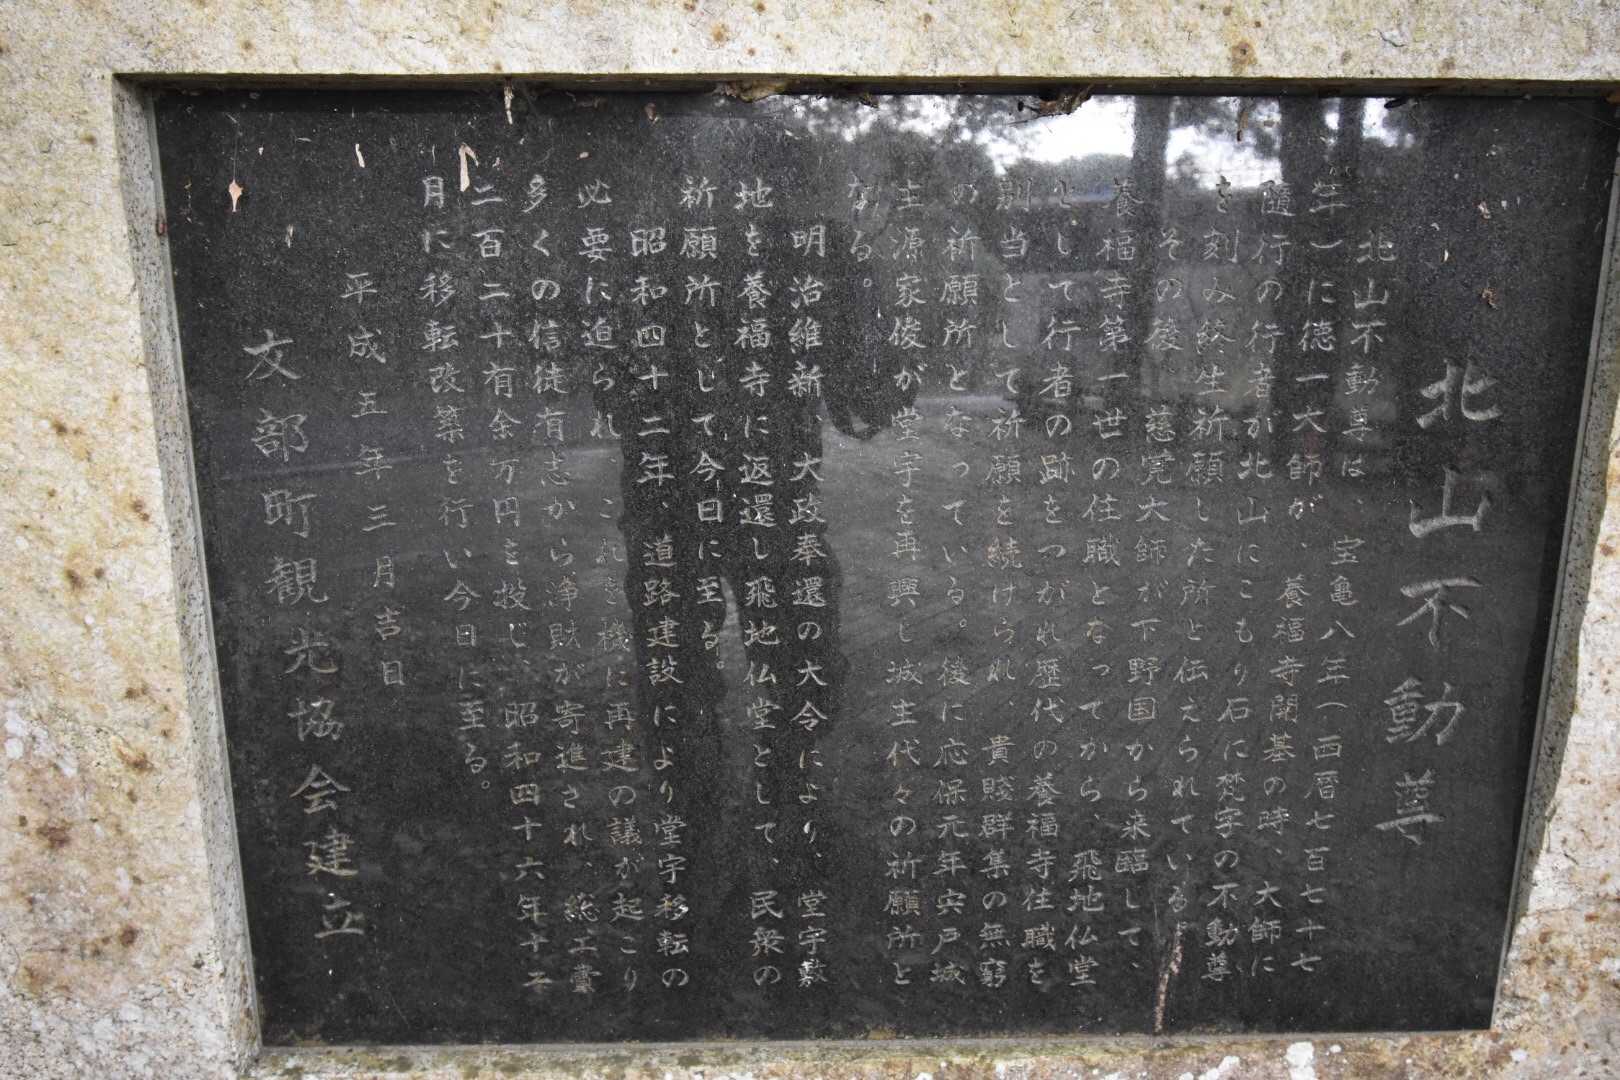 北山不動尊
北山不動尊は、宝亀八年(西暦七百七十七
年)に徳一大師が、養福寺開基の時、大師に
随行の行者が北山にこもり石に梵字の不動尊
を刻み終生祈願した所と伝えられている。
その後、慈覚大師が下野国から来臨して、
養福寺第一世の住職となってから、飛地仏堂
として行者の跡をつがれ歴代の養福寺住職を
別当として祈願を続けられ、貴賤群集の無窮
の祈願所となっている。後に応保元年宍戸城
主源家俊が堂宇を再興し城主代々の祈願所と
なる。
明治維新、大政奉還の大令により、堂宇敷
地を養福寺に返還し飛地仏堂として、民衆の
祈願所として今日に至る。
昭和四十二年、道路建設により堂宇移転の
必要に迫られ、これを機に再建の議が起こり
多くの信徒有志から浄財が寄進され、総工費
二百二十有余万円を投じ、昭和四十六年十二
月に移転改築を行い今日に至る。
平成五年三月吉日
友部町観光協会建立